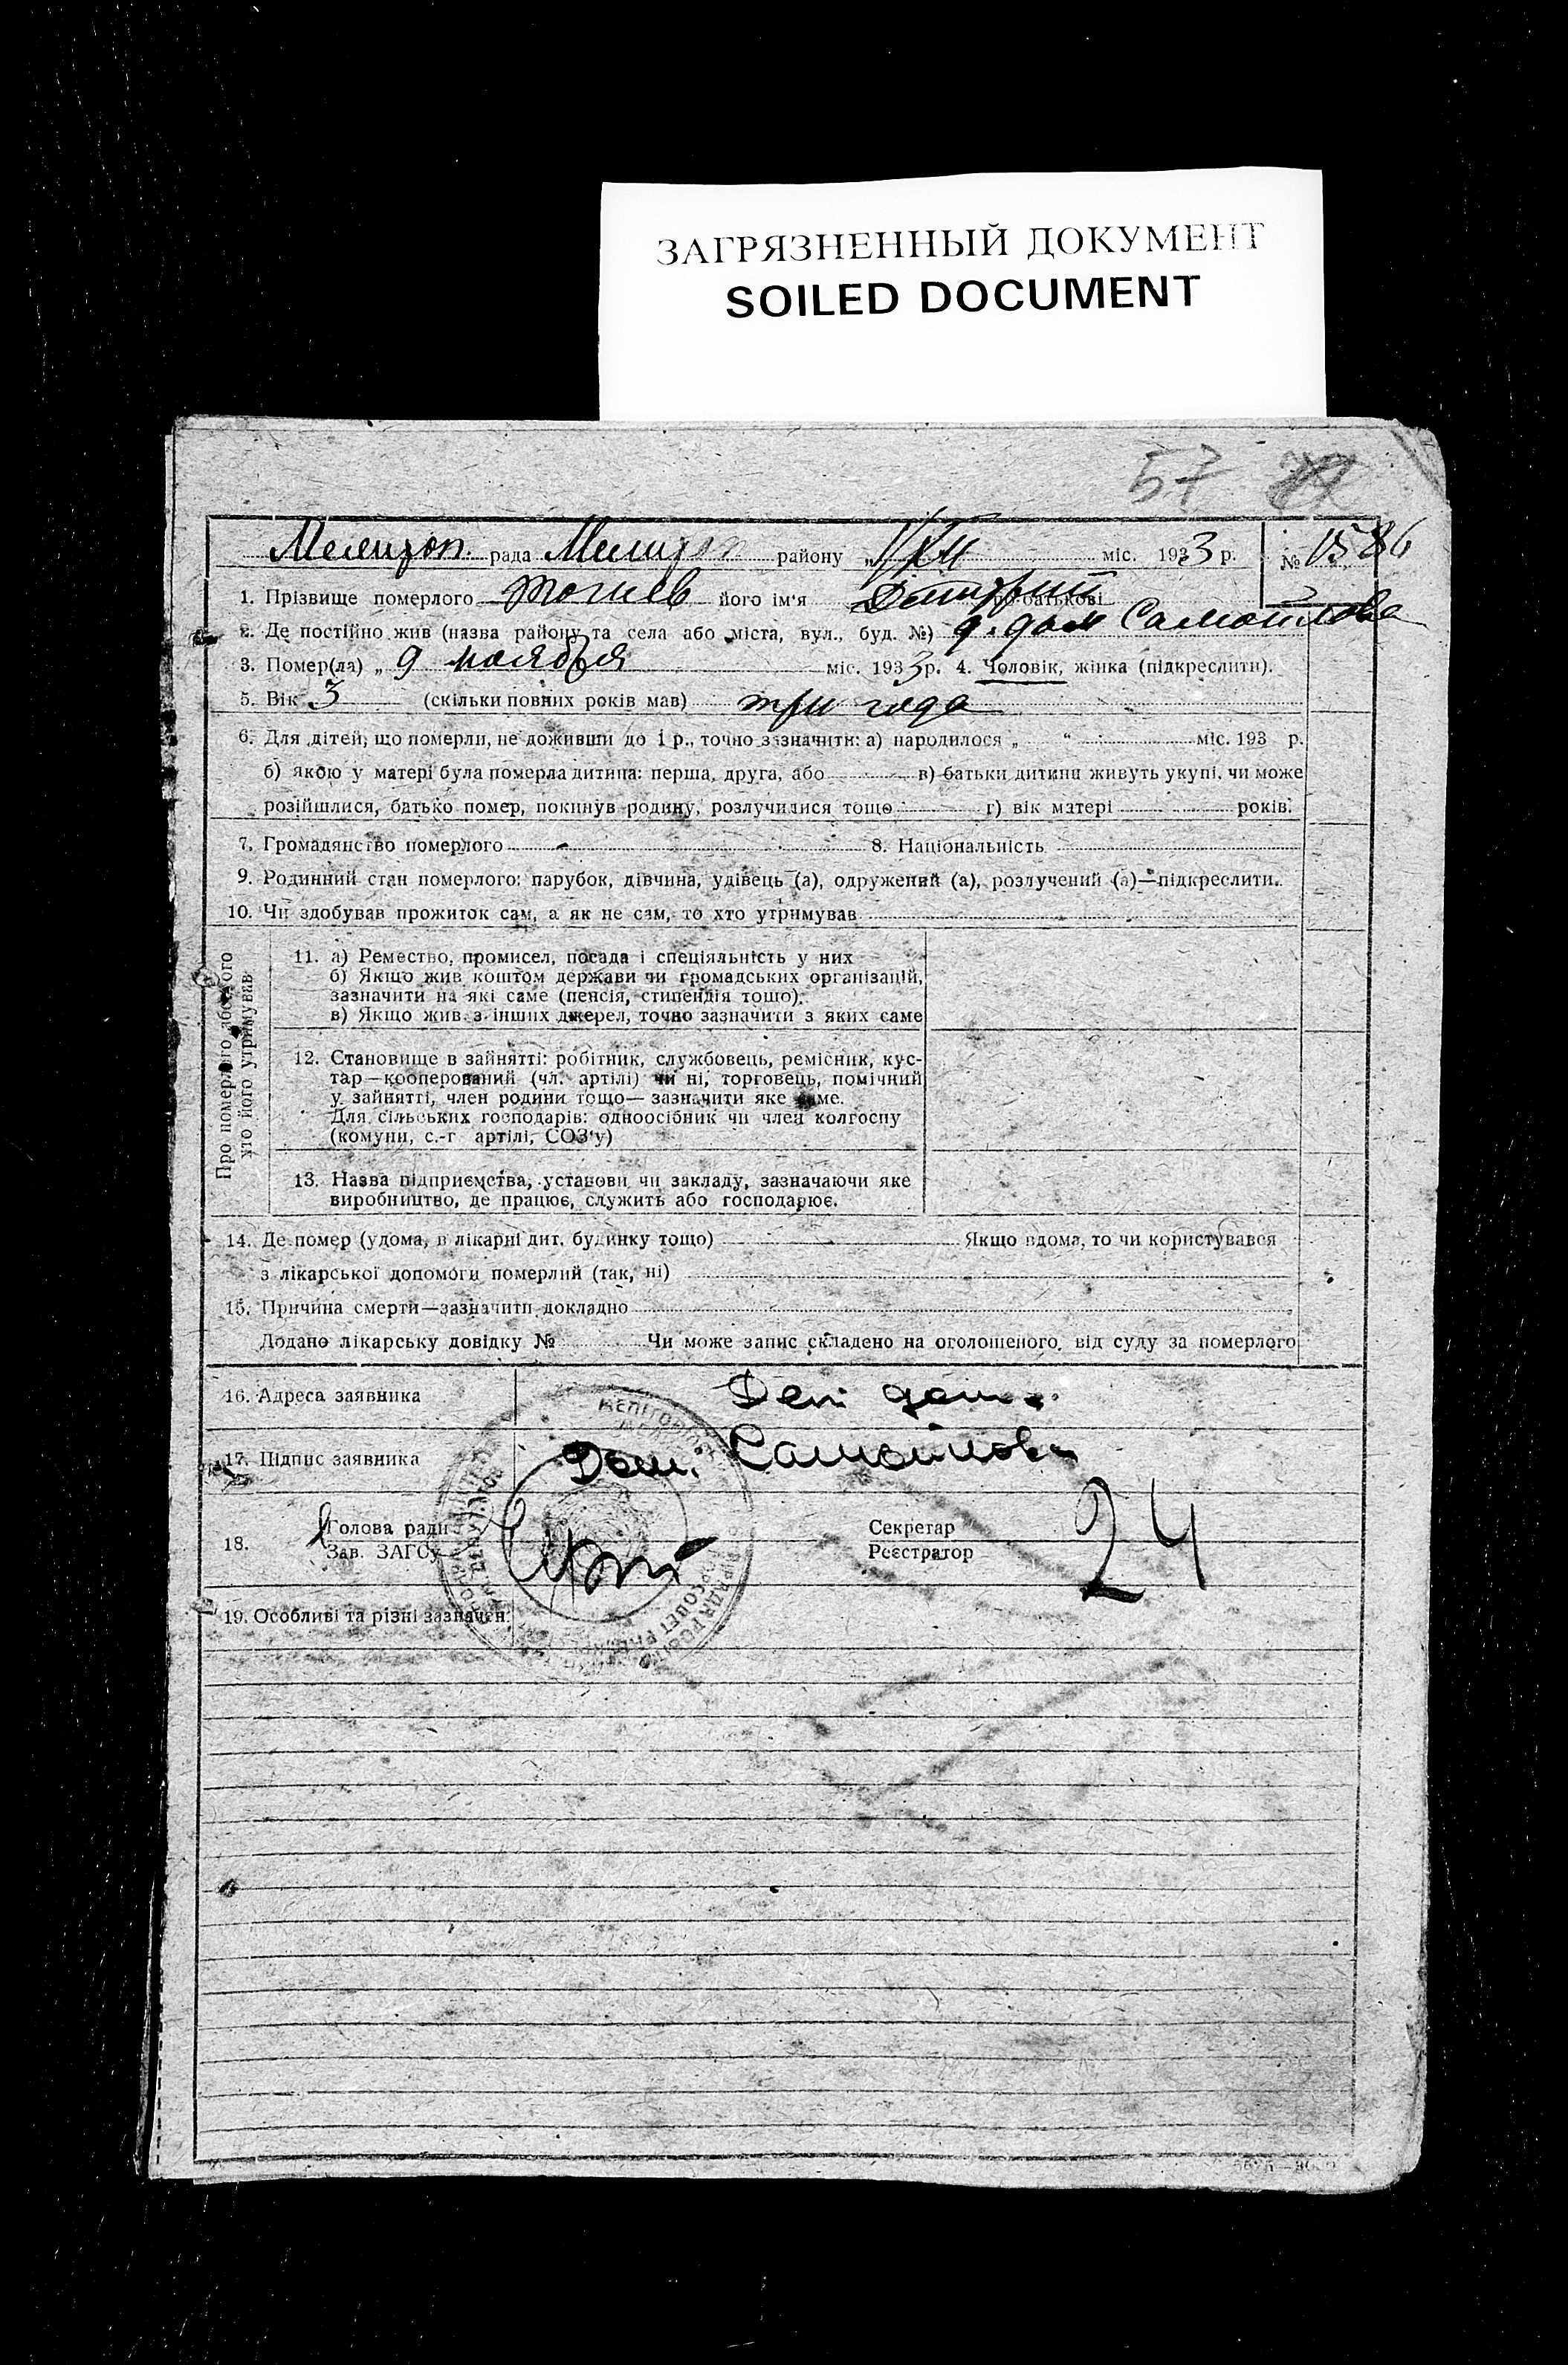 ЗАГРЯЗНЕННЫЙ ДОКУМЕНТ
SOILED DOCUMENT
57
рада району міс. 1933 р. № 1586
1. Прізвище померлого його ім'я Дмитрий по-батькові
2. Де постійно жив (назва району та села або міста, вул., буд. №) д. дом Самойлова
3. Помер(ла) „ 9 ноября міс. 1933 р. 4. Чоловік, жінка (підкреслити).
5. Вік 3 (скільки повних років мав) три года
6. Для дітей, що померли, не доживши до 1 р., точно зазначити: а) народилося „ “ міс. 193 р.
б) якою у матері була померла дитина: перша, друга, або в) батьки дитини живуть укупі, чи може
розійшлися, батько помер, покинув родину, розлучилися тощо г) вік матері років.
7. Громадянство померлого 8. Національність
9. Родинний стан померлого: парубок, дівчина, удівець (а), одружений (а), розлучений (а)—підкреслити.
10. Чи здобував прожиток сам, а як не сам, то хто утримував
Про померлого або того
хто його утримував
11. а) Ремество, промисел, посада і спеціяльність у них
б) Якщо жив коштом держави чи громадських організацій,
зазначити на які саме (пенсія, стипендія тощо).
в) Якщо жив з інших джерел, точно зазначити з яких саме
12. Становище в зайнятті: робітник, службовець, ремісник, кус-
тар—кооперований (чл. артілі) чи ні, торговець, помічний
у зайнятті, член родини тощо— зазначити яке саме.
Для сільських господарів: одноосібник чи член колгоспу
(комуни, с.-г артілі, СОЗ'у)
13. Назва підприємства, установи чи закладу, зазначаючи яке
виробництво, де працює, служить або господарює.
14. Де помер (удома, в лікарні дит. будинку тощо) Якщо вдома, то чи користувався
з лікарської допомоги померлий (так, ні)
15. Причина смерти—зазначити докладно
Додано лікарську довідку № Чи може запис складено на оголошеного, від суду за померлого
16. Адреса заявника Дет дом
17. Підпис заявника Дет. Самойлова
18. Голова ради Секретар 24
Зав. ЗАГСу Реєстратор
19. Особливі та різні зазначен.